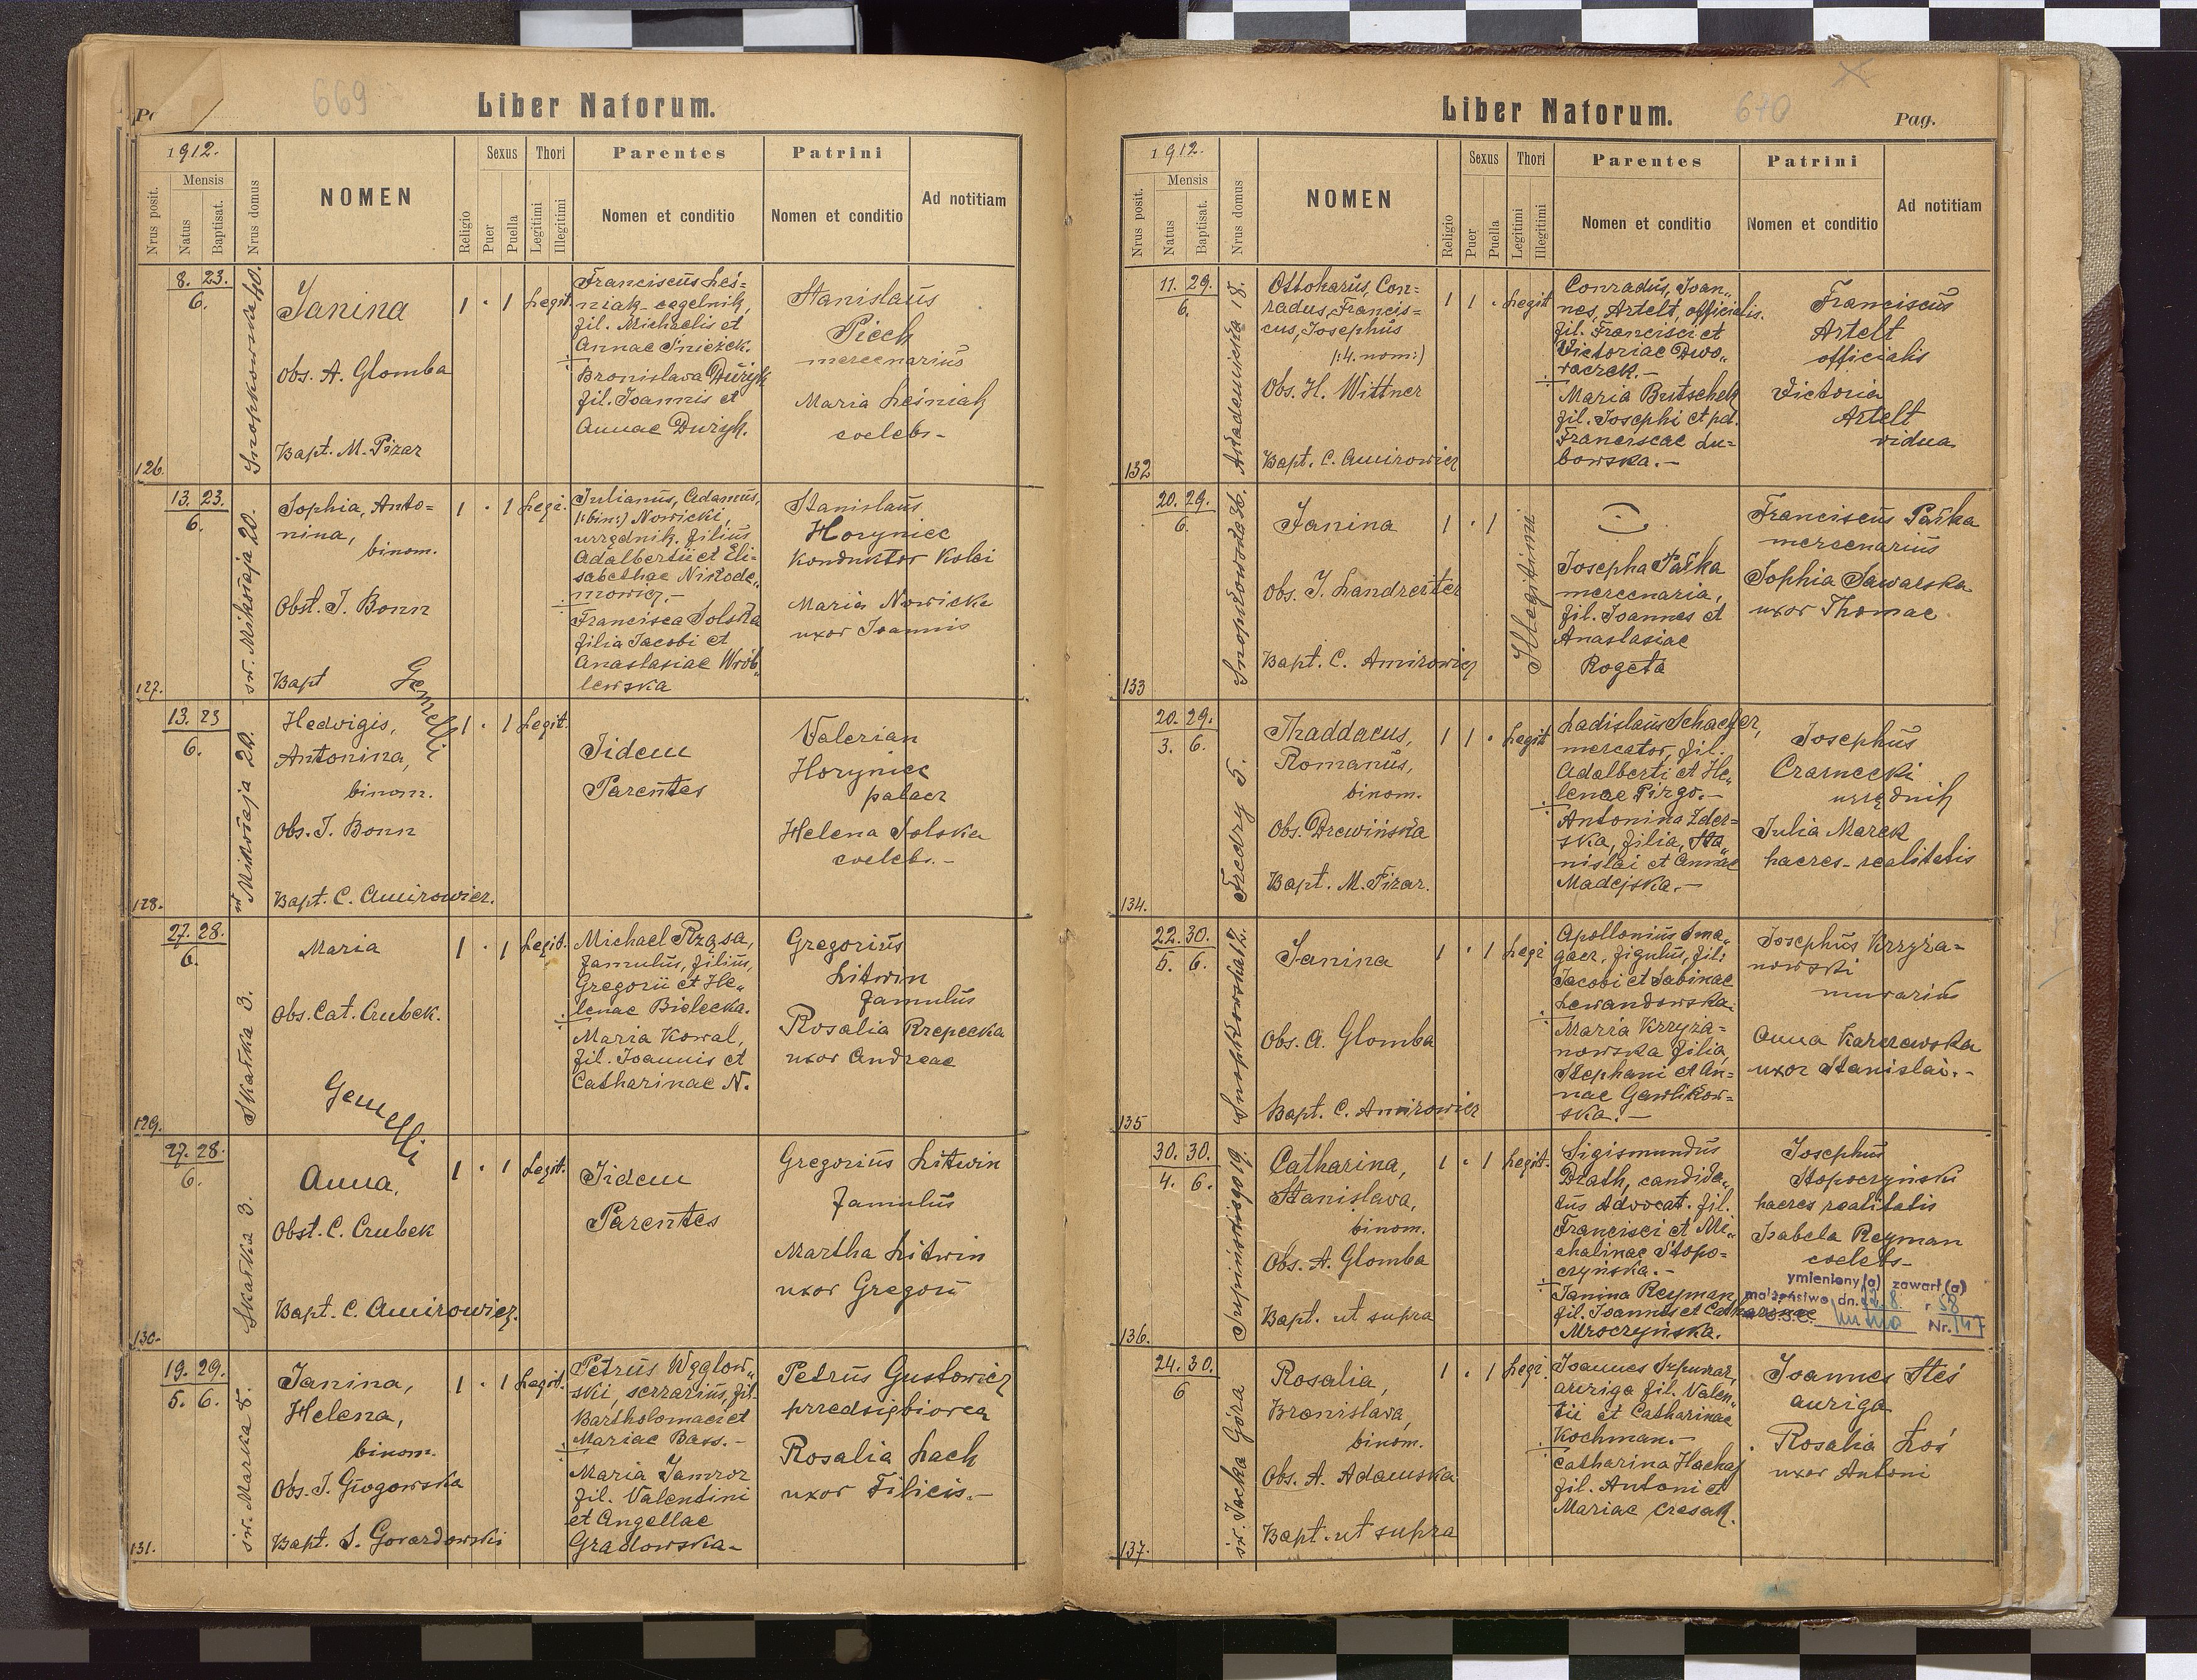 669
Liber Natorum.
1912.
Nrus posit.
Mensis
Natus
Baptisat.
Nrus domus
NOMEN
Religio
Sexus
Puer
Puella
Thori
Legitimi
Illegitimi
Parentes
Nomen et conditio
Patrini
Nomen et conditio
Ad notitiam
126.
8. 23.
6.
Janina
Obs. A. Glomba
Bapt. M. Pizar
1 · 1 Legit.
Franciscus Leś=
niak cegelnik,
fil. Michaelis et
Annae Śnieżek.
Bronislava Dużyk
fil. Joannis et
Annae Dużyk.
Stanislaus
Piech
mercenarius
Maria Leśniak
coelebs-
127.
13. 23.
6.
św. Mikołaja 20.
Sophia, Anto=
nina,
binom.
Obst. J. Bonn
Bapt
Gemelli
1 · 1 Legi.
Julianus, Adamus,
(:bin:) Nowicki,
urzędnik. filius
Adalbertii et Eli=
sabethae Nikode„
mowicz.-
Francisca Solska
filia Jacobi et
Anastasiae Wrób„
lewska
Stanislaus
Horyniec
Konduktor Kolei
Maria Nowicka
uxor Joannis
128.
13. 23
6.
św Mikołaja 20.
Hedvigis,
Antonina,
binom.
Obs. J. Bonn
Bapt. C. Amirowicz.
1 · 1 Legit.
Iidem
Parentes
Valerian
Horyniec
palacz
Helena Solska
coelebs.-
129.
27. 28.
6.
Skałka 3.
Maria
Obs. Cat. Czubek.
Gemelli
1 · 1 Legit.
Michael Rząsa,
famulus, filius,
Gregorii et He„
lenae Bielecka.
Maria Kowal,
fil. Joannis et
Catharinae N.
Gregorius
Litwin
famulus
Rosalia Rzepecka
uxor Andreae
130.
27. 28.
6.
Skałka 3.
Anna,
Obst. C. Czubek
Bapt. C. Amirowicz.
1 · 1 Legit.
Iidem
Parentes
Gregorius Litwin
famulus
Martha Litwin
uxor Gregorii
131.
19. 29.
5. 6.
św. Marka 8.
Janina,
Helena,
binom.
Obs. J. Głogowska
Bapt. S. Gorazdowski
1 · 1 Legit.
Petrus Węglow„
ski, serrarius, fil.
Bartholomaei et
Mariae Bass.-
Maria Jamroz
fil. Valentini
et Angellae
Gradowska-
Petrus Gustowicz
przedsiębiorca
Rosalia Lach
uxor Filicis.-
Liber Natorum.
670
Pag.
1912.
Nrus posit.
Mensis
Natus
Baptisat.
Nrus domus
NOMEN
Religio
Sexus
Puer
Puella
Thori
Legitimi
Illegitimi
Parentes
Nomen et conditio
Patrini
Nomen et conditio
Ad notitiam
132
11. 29.
6.
Akademicka 18.
Ottokarus, Con=
radus, Francis=
cus, Josephus
(:4. nom:)
Obs. H. Wittner
Bapt. C. Amirowicz
1 1 · Legit
Conradus, Joan„
nes, Artelt, officialis.
fil. Francisci et
Victoriae Dwo„
raczek.-
Maria Butschek
fil. Josephi et pd.
Franciscae Lu=
bowska.-
Franciscus
Artelt
officialis
Victoria
Artelt
vidua.
133
20. 29.
6.
Janina
Obs. J. Landreiter
Bapt. C. Amirowicz
1 · 1
Illegitimi
Josepha Pałka
mercenaria,
fil. Joannes et
Anastasiae
Rogeta
Franciscus Pałka
mercenarius
Sophia Sawarska
uxor Thomae
134.
20. 29.
3. 6.
Fredry 5.
Thaddaeus,
Romanus,
binom.
Obs. Drewińska
Bapt. M. Pizar.
1 1 · Legit
Ladislaus Schaefer,
mercator, fil.
Adalberti et He„
lenae Pirgo.-
Antonina Zder=
ska, filia, Sta„
nislai et Annae
Madejska.-
Josephus
Czarnecki
urzędnik
Julia Marek
haeres-realitatis
135
22. 30.
5. 6.
Janina
Obs. A. Glomba
Bapt. C. Amirowicz
1 · 1 Legi
Apollonius Sma„
gacz, figulus, fil:
Jacobi et Sabinae
Lewandowska.
Maria Krzyża=
nowska filia,
Stephani et An=
nae Gawlikow=
ska.-
Josephus Krzyża=
nowski
murarius
Anna Karczewska
uxor Stanislai.-
136.
30. 30.
4. 6.
Supinińskiego 19.
Catharina,
Stanislava,
binom.
Obs. A. Glomba
Bapt. ut supra
1 · 1 Legit.
Sigismundus
Drath, candida„
tus Advocat. fil.
Francisci et Mi„
chalinae Stopo=
czyńska.-
Janina Reyman,
fil. Joannis et Catharinae
Mroczyńska.
Josephus
Stopoczyński
haeres realitatis
Isabela Reyman
coelebs-
ymieniony(a) zawarł(a)
małżeństwo dn. 23.8. r 58
U.S.C. Nr. 147
137.
24. 30.
6
św. Jacka Góra
Rosalia,
Bronislava,
binom.
Obs. A. Adamska
Bapt. ut supra
1 · 1 Legi.
Joannes Szpunar,
auriga fil. Valen„
tii et Catharinae
Kochman.-
Catharina Hachaj
fil. Antoni et
Mariae Czesak.
Joannes Steś
auriga
Rosalia Łoś
uxor Antoni